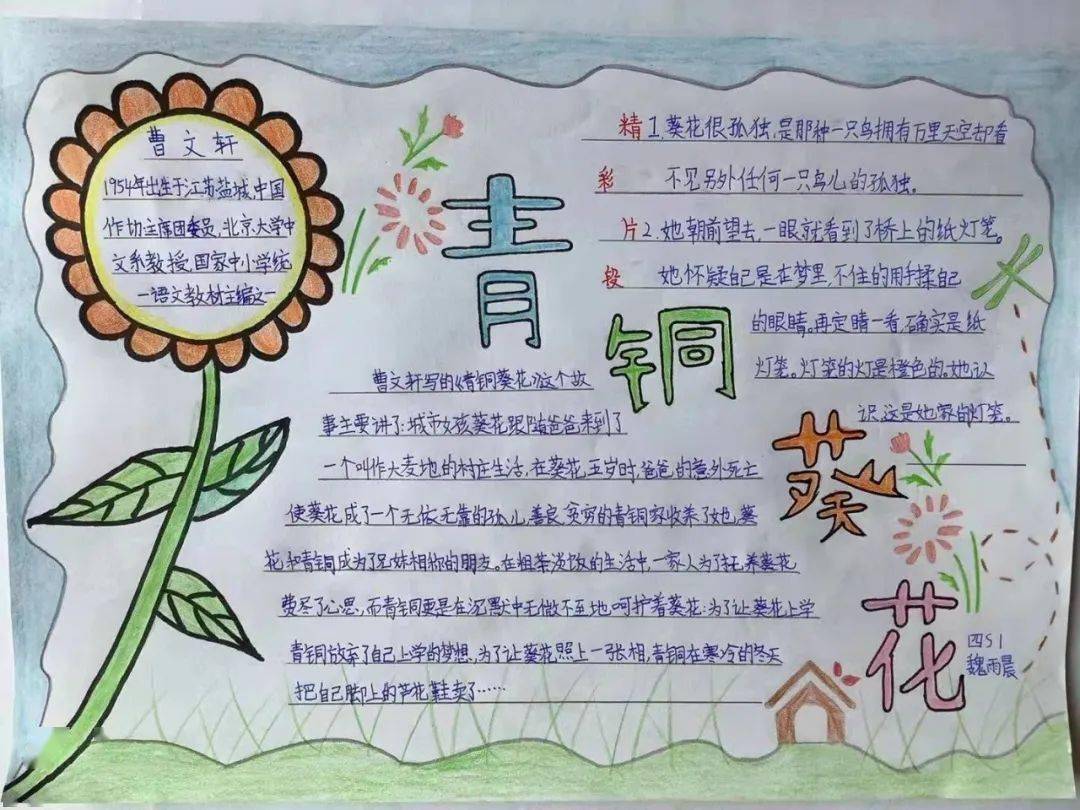 曹文轩
1954年出生于江苏盐城,中国
作协主席团委员,北京大学中
文系教授,国家中小学统
一语文教材主编之一
青铜葵花
精彩片段
1.葵花很孤独,是那种一只鸟拥有万里天空却看
不见另外任何一只鸟儿的孤独。
2.她朝前望去,一眼就看到了桥上的纸灯笼。
她怀疑自己是在梦里,不住的用手揉自己
的眼睛。再定睛一看,确实是纸
灯笼。灯笼的灯是橙色的。她认
识,这是她家的灯笼。
曹文轩写的《青铜葵花》这个故
事主要讲了:城市女孩葵花跟随爸爸来到了
一个叫作大麦地的村庄生活,在葵花五岁时,爸爸的意外死亡
使葵花成了一个无依无靠的孤儿,善良贫穷的青铜家收养了她,葵
花和青铜成为了兄妹相称的朋友。在粗茶淡饭的生活中,一家人为了抚养葵花
费尽了心思,而青铜更是在沉默中无微不至地呵护着葵花:为了让葵花上学
青铜放弃了自己上学的梦想,为了让葵花照上一张相,青铜在寒冷的冬天
把自己脚上的芦花鞋卖了……
四51
魏雨晨